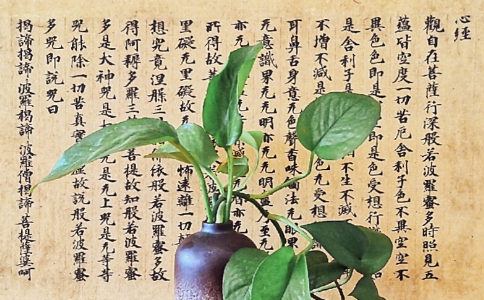 心経
觀自在菩薩行深般若波羅蜜多時照見五
蘊皆空度一切苦厄舍利子色不異空空不
異色色即是 即是色受想行
是舍利子 不生不滅
不增不減是 色无受想
耳鼻舌身意无色聲香味 法无眼界
无意識界无无明亦无无明 至无
亦无 亦无
所得故
罣礙无罣礙故 怖遠離一切
想究竟涅槃三 依般若波羅蜜多故
得阿耨多羅三 菩提故知般若波羅蜜
多是大神咒是 咒是无上咒是无等等
咒能除一切苦真實 虛故說般若波羅蜜
多咒即說咒曰
揭諦揭諦 波羅揭諦 波羅僧揭諦 菩提薩婆訶